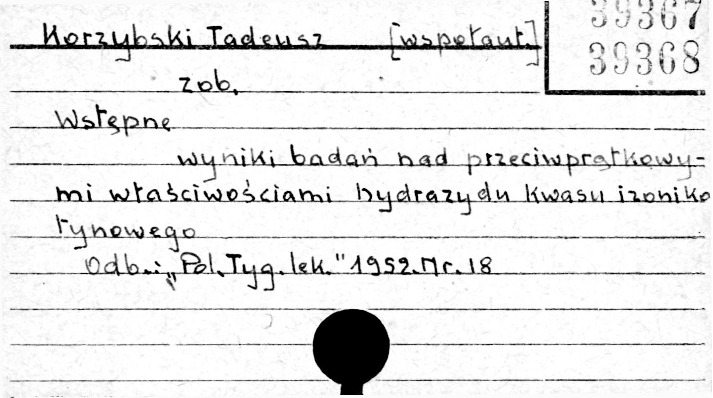 39367
Korzybski Tadeusz [współaut.]
39368
zob.
Wstępne
wyniki badań nad przeciwprątkowy-
mi właściwościami hydrazydu kwasu izoniko
tynowego
Odb.: "Pol. Tyg. lek." 1952. Nr. 18